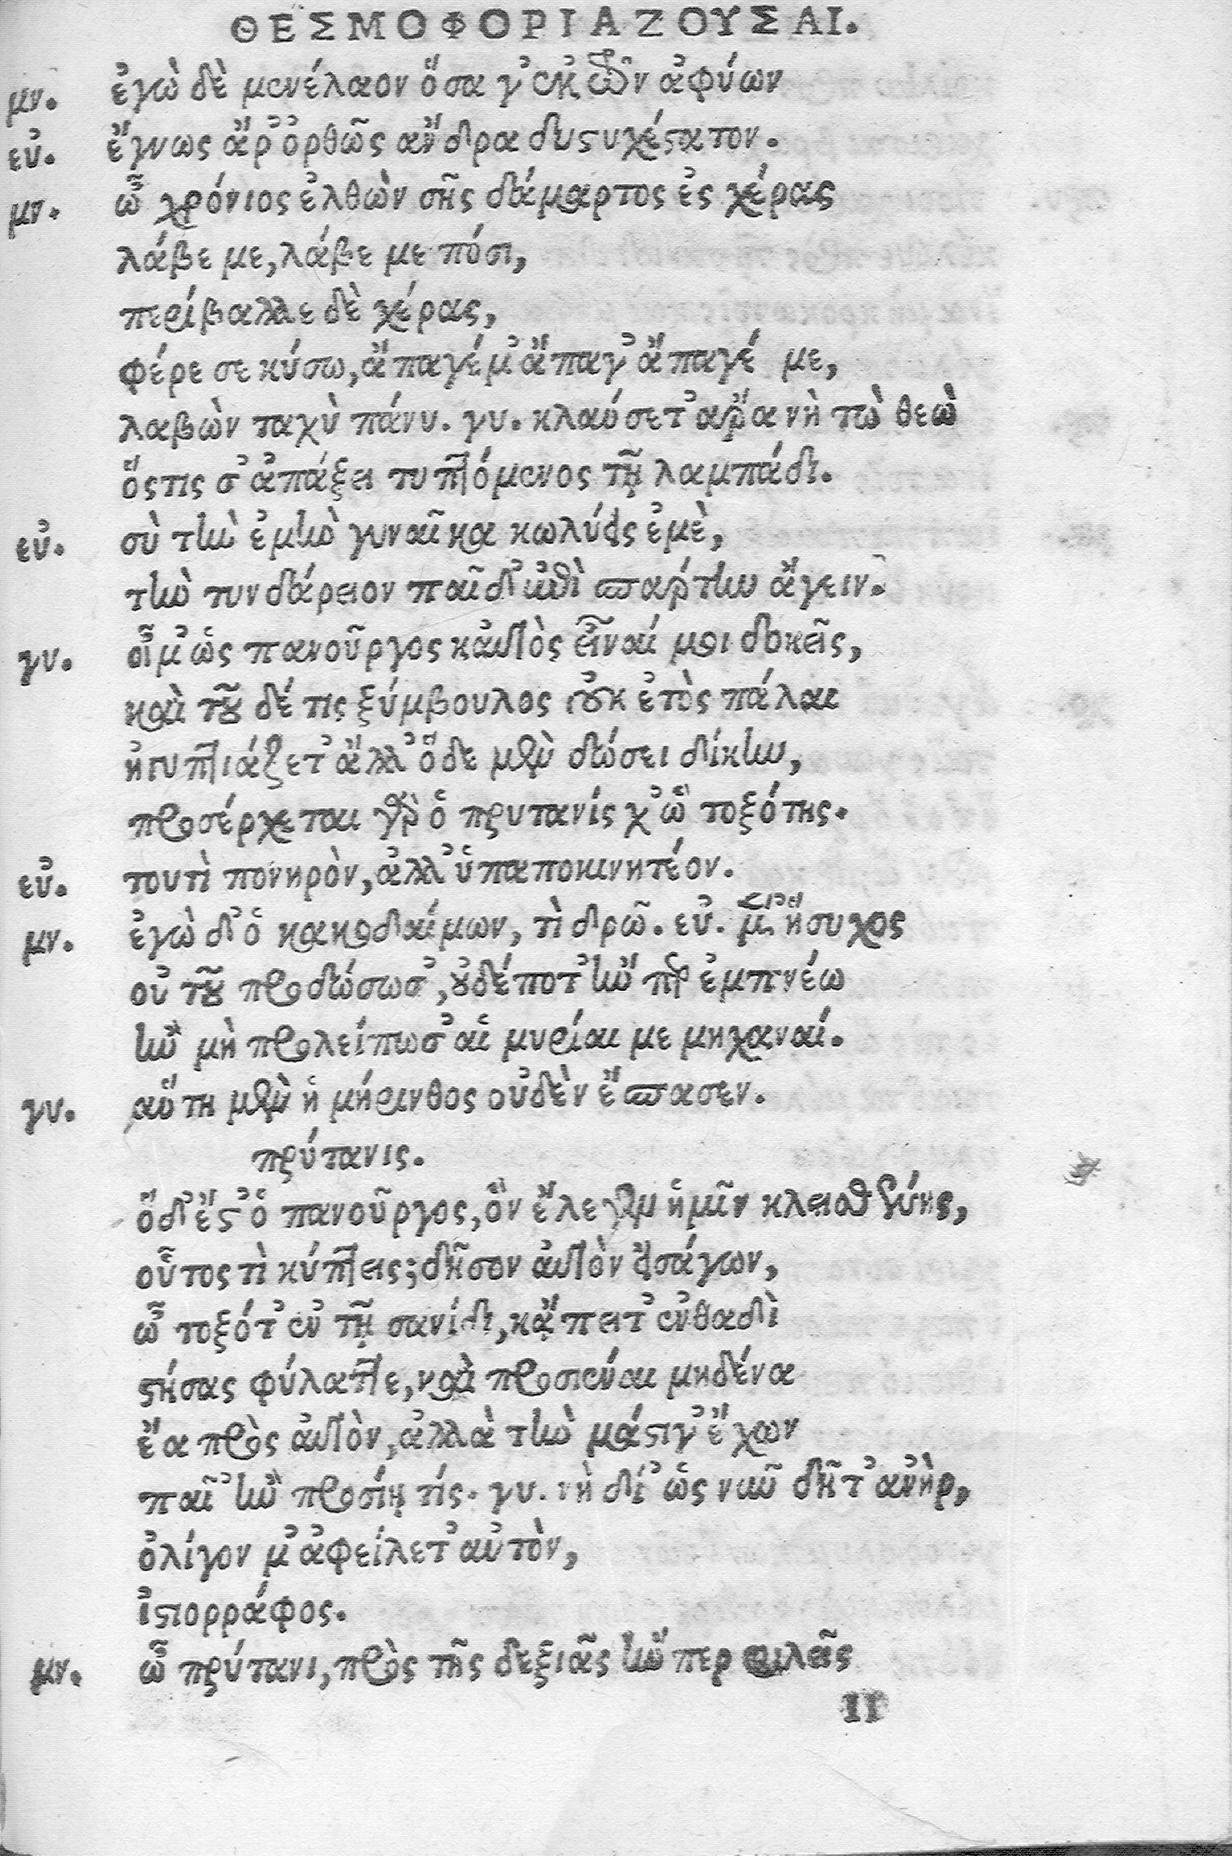 ΘΕΣΜΟΦΟΡΙΑΖΟΥΣΑΙ.
μν. ἐγὼ δὲ μενέλαον ὅσα γ' ἐκ τῶν ἀφύων
εὐ. ἔγνως ἄρ' ὀρθῶς ἄνδρα δυστυχέστατον.
μν. ὦ χρόνιος ἐλθὼν σῆς δάμαρτος ἐς χέρας
λάβε με, λάβε με πόσι,
περίβαλλε δὲ χέρας,
φέρε σε κύσω, ἄπαγέ μ' ἄπαγ' ἄπαγέ με,
λαβὼν ταχὺ πάνυ. γυ. κλαύσετ' ἄρα νὴ τὼ θεὼ
ὅστις σ' ἀπάξει τυπτόμενος τῇ λαμπάδι.
εὐ. σὺ τὴν ἐμὴν γυναῖκα κωλύεις ἐμὲ,
τὴν τυνδάρειον παῖδ' ἐπὶ σπάρτην ἄγειν.
γυ. οἴμ' ὡς πανοῦργος καὐτὸς εἶναί μοι δοκεῖς,
καὶ τοῦ δέ τις ξύμβουλος οὐκ ἐτὸς πάλαι
ἠγυπτιάζετ' ἀλλ' ὅδε μὲν δώσει δίκην,
προσέρχεται γὰρ ὁ πρυτανίς χ' ὠ τοξότης.
εὐ. τουτὶ πονηρὸν, ἀλλ' ὑπαποκινητέον.
μν. ἐγὼ δ' ὁ κακοδαίμων, τὶ δρῶ. εὐ. μέν' ἥσυχος
οὐ τοῦ προδώσω σ', οὐδέποτ' ἤν περ ἐμπνέω
ἢν μὴ προλείπωσ' αἱ μυρίαι με μηχαναί.
γυ. αὕτη μὲν ἡ μήρινθος οὐδὲν ἔσπασεν.
πρύτανις.
ὅδ' ἔσθ' ὁ πανοῦργος, ὃν ἔλεγεν ἡμῖν κλεισθένης,
οὗτος τὶ κύπτεις; δῆσον αὐτὸν εἰσάγων,
ὦ τοξότ' ἐν τῇ σανίδι, κἄπειτ' ἐνθαδὶ
στήσας φύλαττε, καὶ προσιέναι μηδένα
ἔα πρὸς αὐτὸν, ἀλλὰ τὴν μάστιγ' ἔχων
παῖ' ἢν προσίῃ τίς. γυ. νὴ δί' ὡς νῦν δῆτ' ἀνὴρ,
ὀλίγον μ' ἀφείλετ' αὐτὸν,
ἱστορράφος.
μν. ὦ πρύτανι, πρὸς τῆς δεξιᾶς ἥνπερ φιλεῖς
II